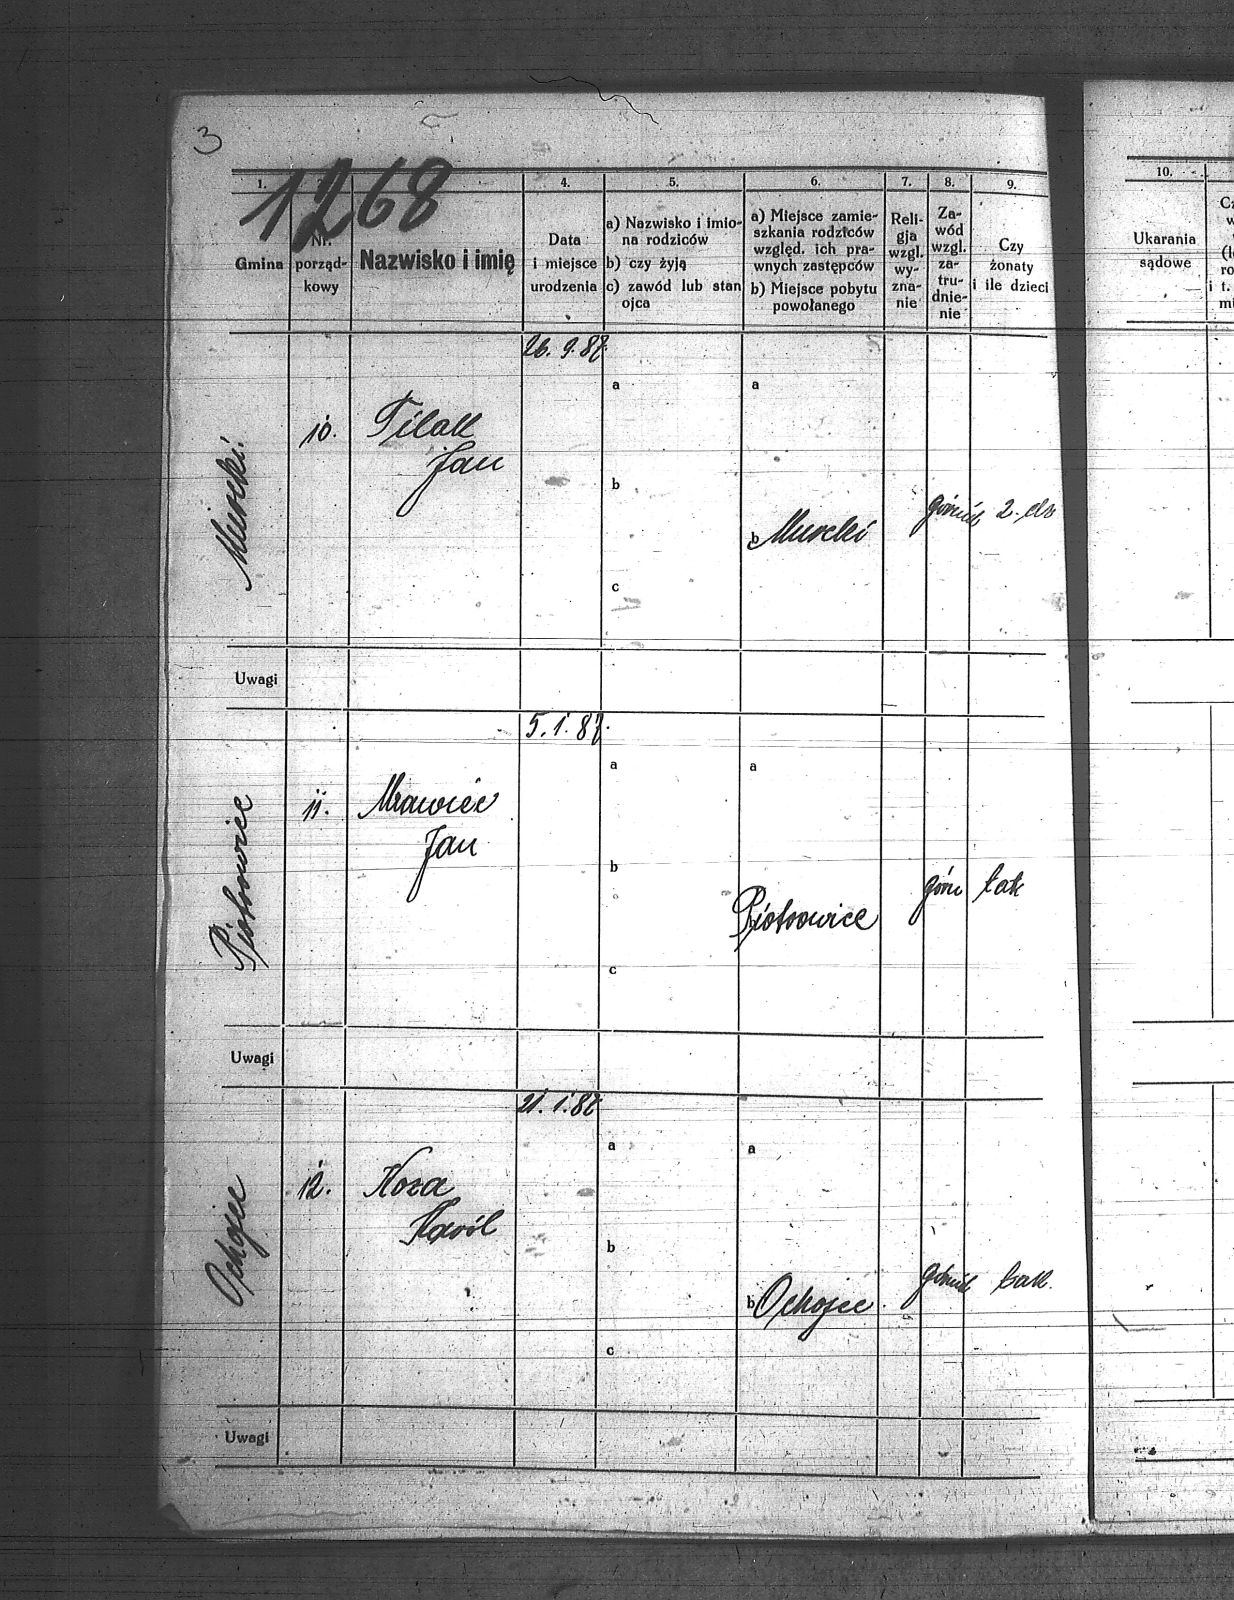 3
1268
1.
4.
5.
6.
7.
8.
9.
10.
Gmina
Nr. porząd-
kowy
Nazwisko i imię
Data
i miejsce
urodzenia
a) Nazwisko i imio-
na rodziców
b) czy żyją
c) zawód lub stan
ojca
a) Miejsce zamie-
szkania rodziców
względ. ich pra-
wnych zastępców
b) Miejsce pobytu
powołanego
Reli-
gja
wzgl.
wy-
zna-
nie
Za-
wód
wzgl.
za-
tru-
dnie-
nie
Czy
żonaty
i ile dzieci
Ukarania
sądowe
Murcki
10.
Filak
Jan
26. 9. 87.
a
b
c
a
b Murcki
górnik
2. dz
Uwagi
Piotrowice
11.
Mrawiec
Jan
5. 1. 87.
a
b
c
a
Piotrowice
górn
tak
Uwagi
Ochojec
12.
Koza
Karól
21. 1. 87
a
b
c
a
b Ochojec.
górnik
tak.
Uwagi